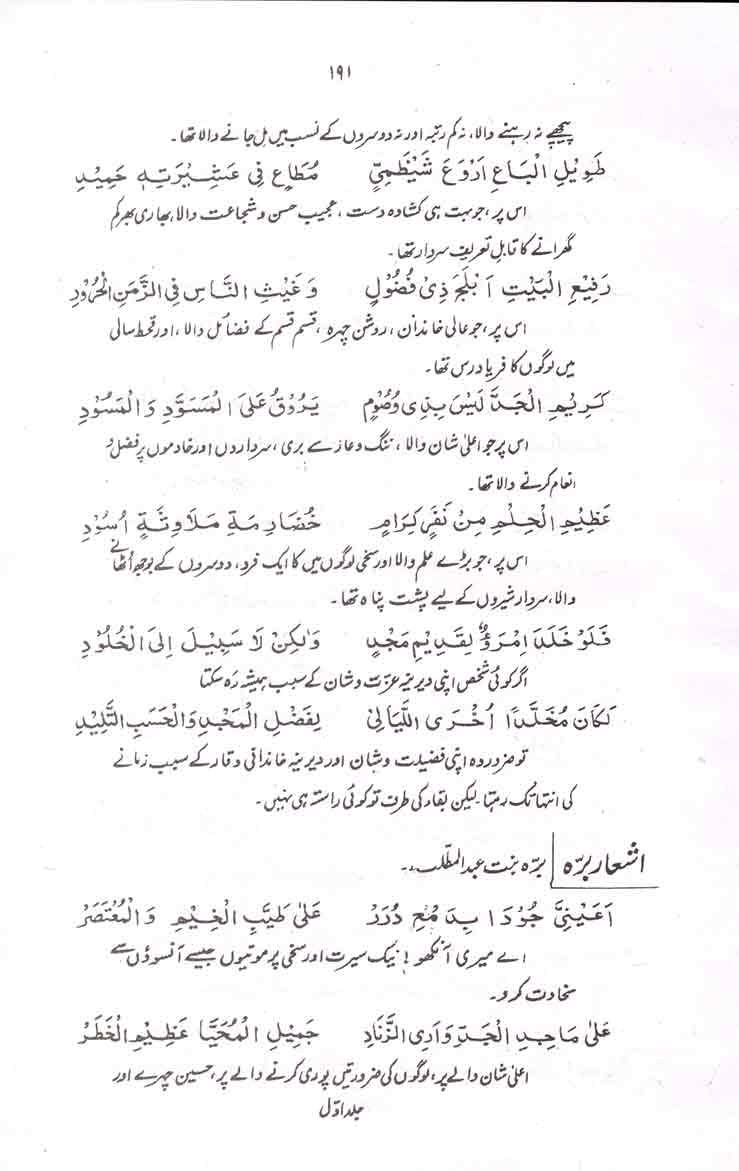 ۱۹۱
پیچھے نہ رہنے والا، نہ کم رتبہ اور نہ دوسروں کے نسب میں مل جانے والا تھا۔
طَوِيْلِ الْبَاعِ اَرْوَعَ شَيْظَمِيٍّ مُطَاعٍ فِيْ عَشِيْرَتِهٖ حَمِيْدِ
اس پر، جو بہت ہی کشادہ دست، عجیب حسن و شجاعت والا، بھاری بھرکم
گھرانے کا قابلِ تعریف سردار تھا۔
رَفِيْعِ الْبَيْتِ اَبْلَجَ ذِيْ فُضُوْلٍ وَغَيْثِ النَّاسِ فِي الزَّمَنِ الْحَرُوْدِ
اس پر، جو عالی خاندان، روشن چہرہ، قسم قسم کے فضائل والا، اور قحط سالی
میں لوگوں کا فریاد رس تھا۔
كَرِيْمِ الْجَدِّ لَيْسَ بِذِيْ وُصُوْمٍ يَرُوْقُ عَلَى الْمُسَوَّدِ وَالْمَسُوْدِ
اس پر جو اعلیٰ شان والا، ننگ و عار سے بری، سرداروں اور خادموں پر فضل و
انعام کرنے والا تھا۔
عَظِيْمِ الْحِلْمِ مِنْ نَفَرٍ كِرَامٍ خُضَارِمَةٍ مَلَاوِثَةٍ اُسُوْدِ
اس پر، جو بڑے علم والا اور سخی لوگوں میں کا ایک فرد، دوسروں کے بوجھ اُٹھانے
والا، سردار شیروں کے لیے پشت پناہ تھا۔
فَلَوْ خَلَدَ امْرَؤٌ لِقَدِيْمِ مَجْدٍ وَلٰكِنْ لَا سَبِيْلَ اِلَى الْخُلُوْدِ
اگر کوئی شخص اپنی دیرینہ عزت و شان کے سبب ہمیشہ رہ سکتا
لَكَانَ مُخَلَّدًا اُخْرَى اللَّيَالِيْ لِفَضْلِ الْمَجْدِ وَالْحَسَبِ التَّلِيْدِ
تو ضرور وہ اپنی فضیلت و شان اور دیرینہ خاندانی وقار کے سبب زمانے
کی انتہا تک رہتا۔ لیکن بقاء کی طرف تو کوئی راستہ ہی نہیں۔
اشعار برّہ برّہ بنت عبدالمطلب۔
اَعَيْنَيَّ جُوْدَا بِدَمْعٍ دُرَرْ عَلٰى طَيِّبِ الْخِيْمِ وَالْمُعْتَصَرْ
اے میری آنکھو! نیک سیرت اور سخی پر موتیوں جیسے آنسوؤں سے
سخاوت کرو۔
عَلٰى مَاجِدِ الْجَدِّ وَارِي الزِّنَادِ جَمِيْلِ الْمُحَيَّا عَظِيْمِ الْخَطَرْ
اعلیٰ شان والے پر، لوگوں کی ضرورتیں پوری کرنے والے پر، حسین چہرے اور
جلد اوّل